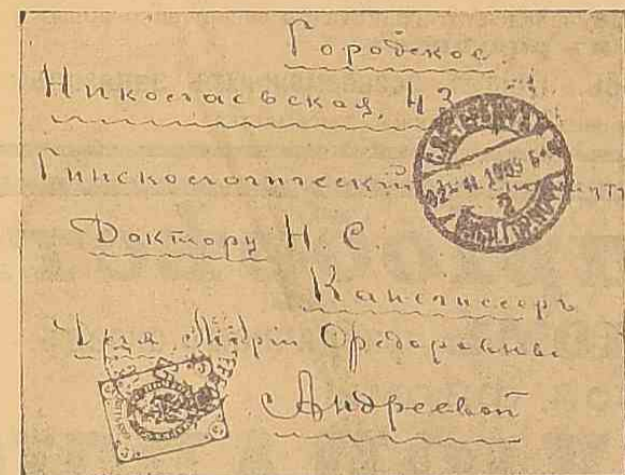 Городское
Николаевская, 43
Гинекологический
Доктору Н. С.
Канегиссеръ
Для Маріи Ѳедоровны
Андреевой
С.ПЕТЕРБУРГЪ
11.1905
2